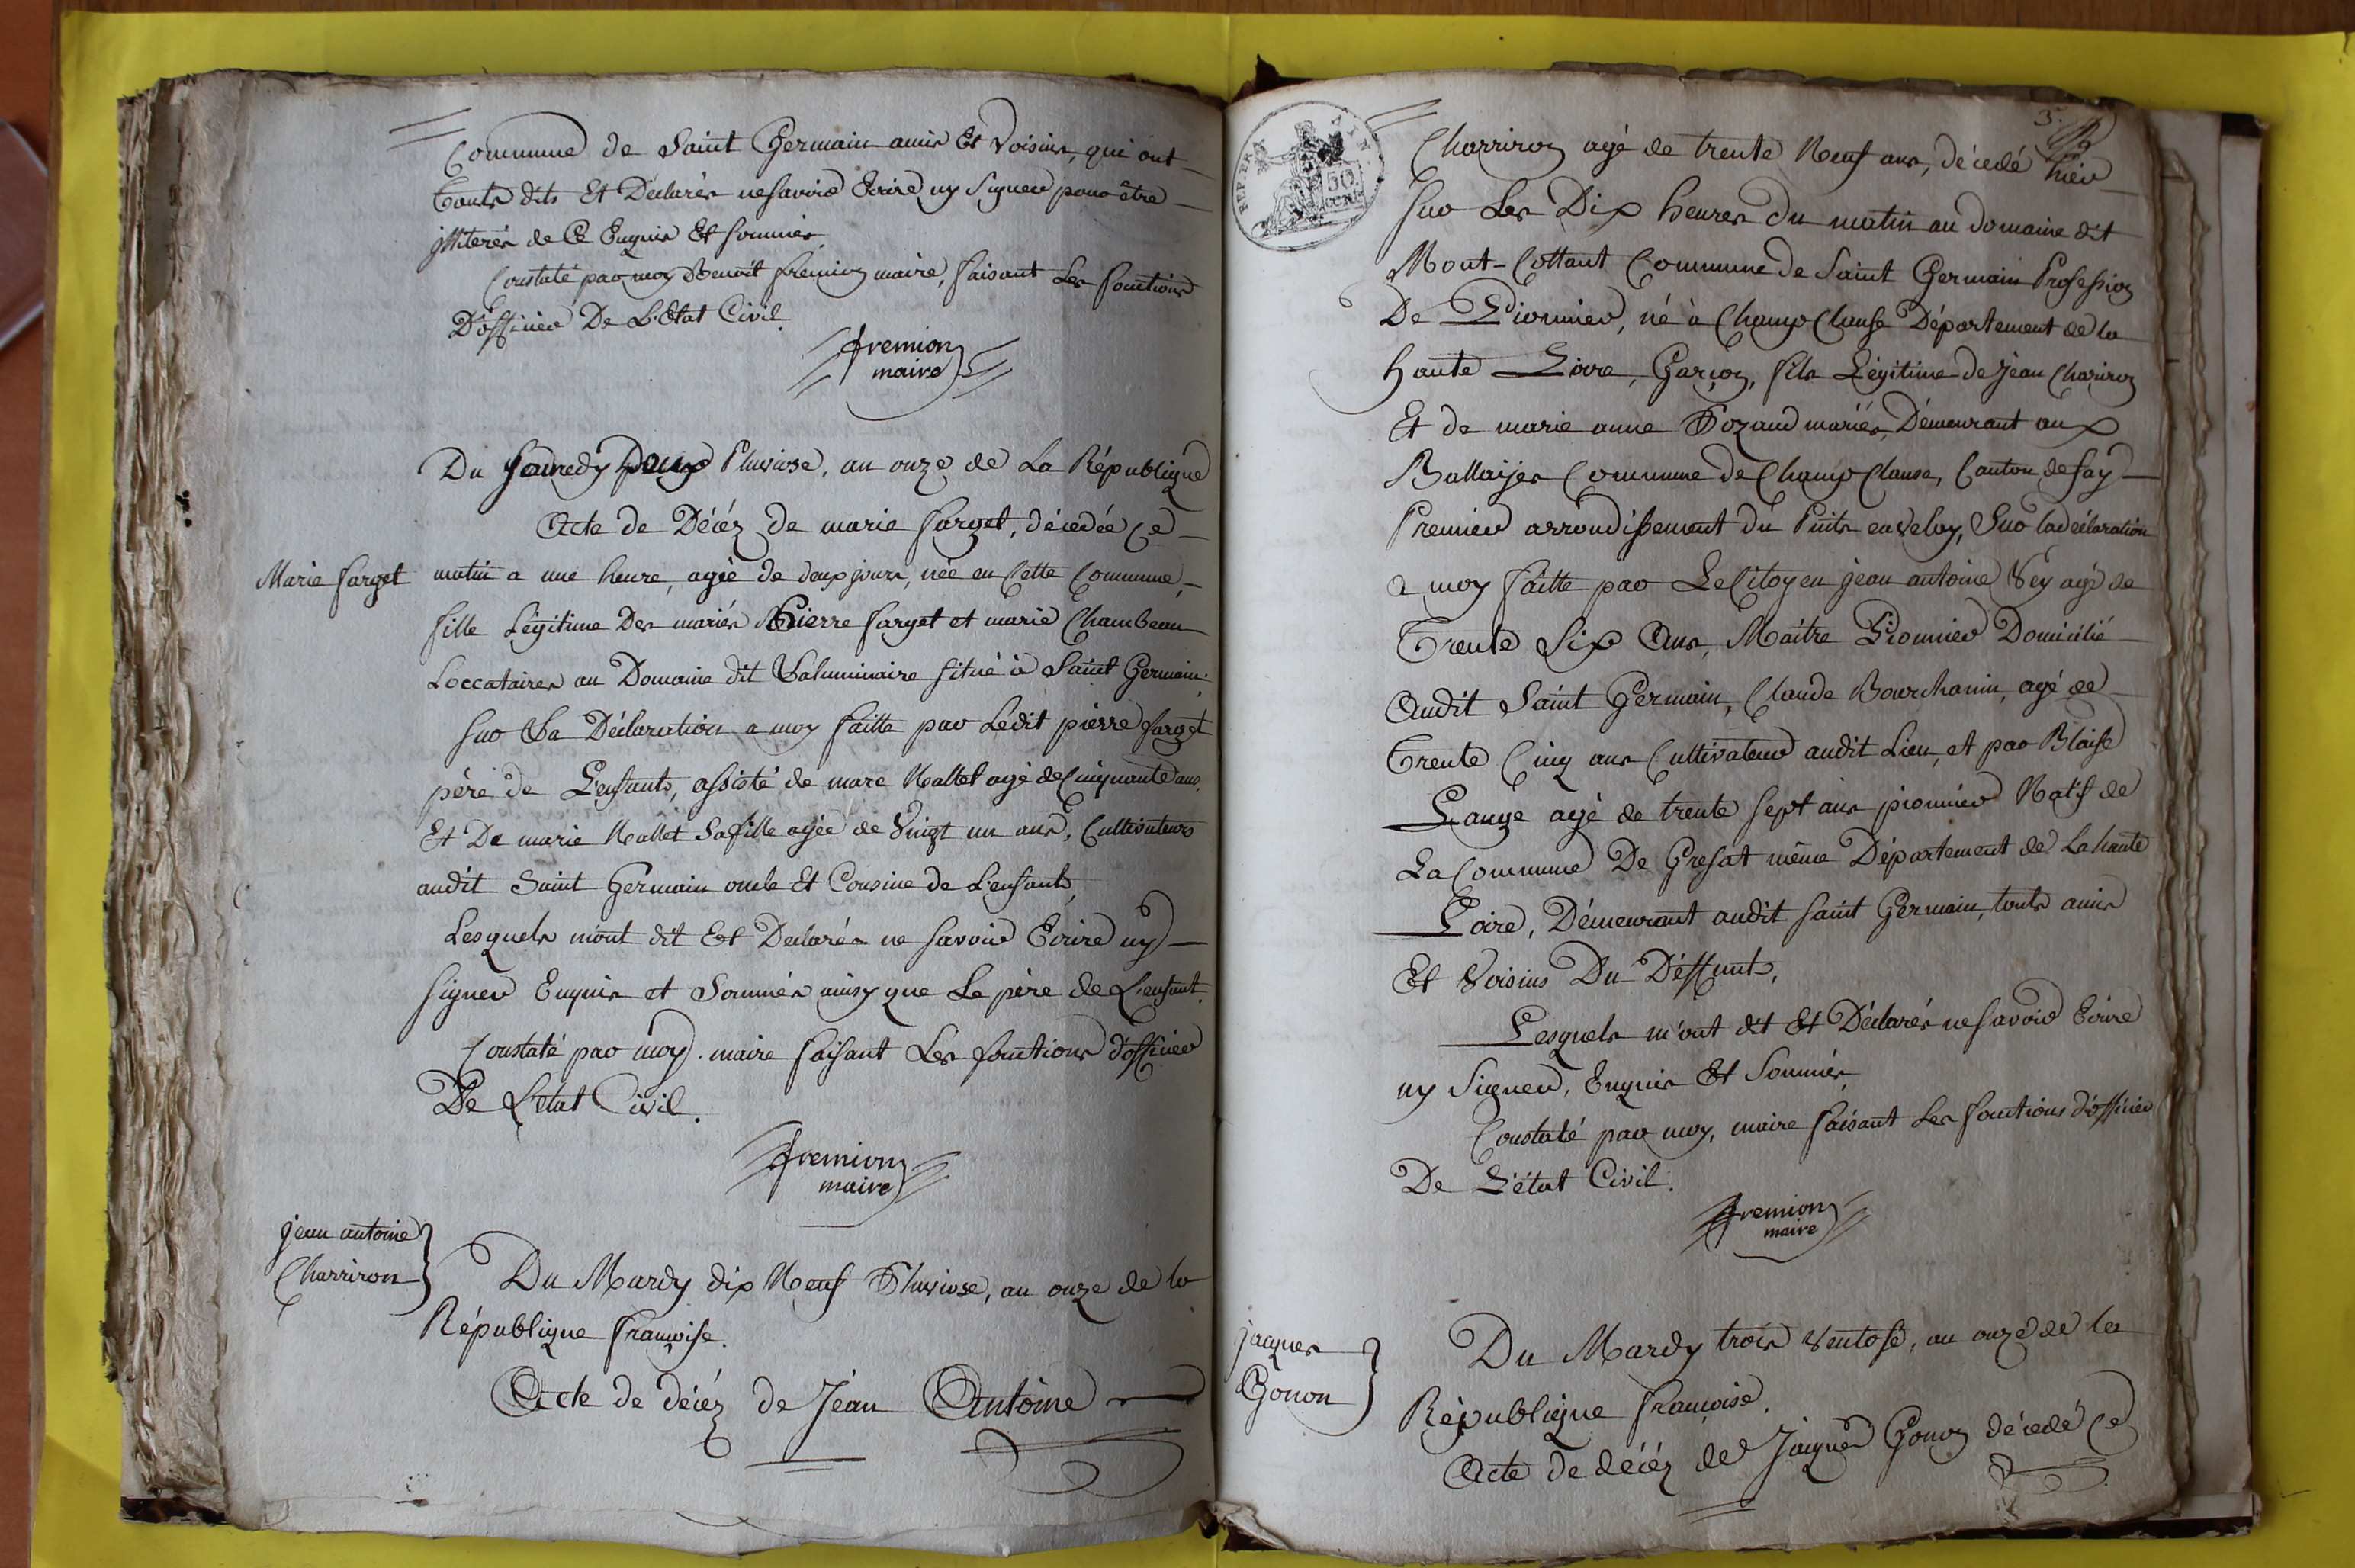 Commune de Saint Germain amis Et Voisins, qui ont
touts dits Et Declarés ne Savoir Ecrire ny Signer pour être
illiterés de Ce Enquis Et sommés.
Constaté par moy Benoit fremion maire, faisant Les fonctions
D'officier De L'Etat Civil.
fremion
maire
Du Samedy Pluviose, an onze de La République
Acte de Décéz de marie farget, décedée Ce
Marie farget
matin a une heure, agée de deux jours, née en Cette Commune,
fille Légitime Des mariés Pierre farget et marie Chambeau
Loccataires au Domaine dit Valuminaire situé à Saint Germain.
sur La Déclaration a moy faitte par Lédit pierre farget
pére de L'enfants, assisté de marc Nallet agé de Cinquante ans,
Et De marie Nallet Sa fille agée de Vingt un ans, Cultivateurs
audit Saint Germain oncle Et Cousine de L'enfants,
Lesquels mont dit Et Declarés ne savoir Ecrire ny
signer Enquis et Sommés ainsy que Le pére de L'enfant.
Constaté par moy. maire faisant Les fonctions d'officier
De L'etat Civil.
fremion
maire
jean antoine
Charriron
Du Mardy dix Neuf Pluviose, an onze de la
République française.
Acte de décéz de Jéan Antoine
3.
REP. FRA.
50
CEN.
Charriron agé de trente Neuf ans, décedé hier
sur Les Dix heures du matin au domaine dit
Mont-Cottant Commune de Saint Germain Profession
De Pionnier, né à Champ Clause Département de la
haute Loire, Garçon, fils Légitime de Jean Chariron
Et de marie anne Fozaud mariés, Démeurant aux
Ballayes Commune de Champ Clause, Canton de fay
Premier arrondissement du Puits en Velay, Sur la déclaration
a moy faitte par Le Citoyen jean antoine Vey agé de
Trente Six Ans, Maître Pionnier Domicilié
Audit Saint Germain, Claude Bourchanin, agé de
Trente Cinq ans Cultivateur audit Lieu, et par Blaise
Lange agé de trente sept ans pionnier Natif de
La Commune De Gresat même Département de La haute
Loire, Démeurant audit saint Germain, touts amis
Et Voisins Du Déffunts,
Lesquels m'ont dit Et Déclarés ne savoir Ecrire
ny Signer, Enquis Et Sommés,
Constaté par moy, maire faisant Les fonctions d'officier
De L'état Civil.
fremion
maire
jaques
Gonon
Du Mardy trois Ventose, an onze de la
République française.
Acte de décéz de Jaques Gonon décedé Ce